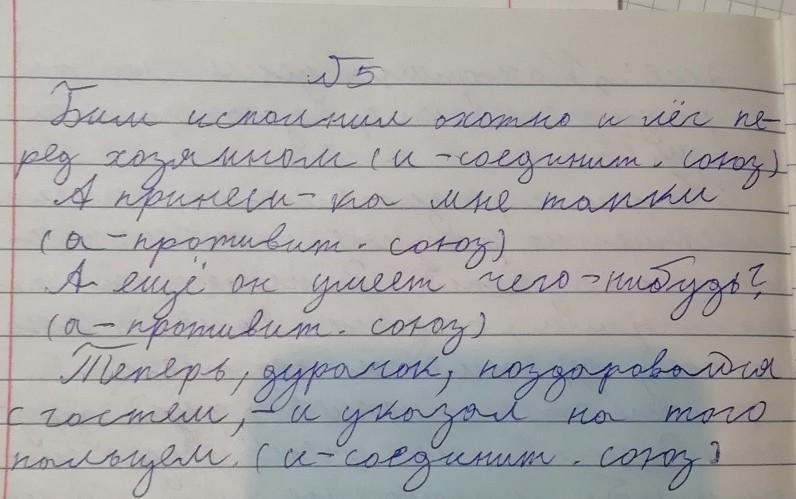 №5
Бим исполнил охотно и лёг пе-
ред хозяином (и - соединит. союз)
А принеси-ка мне тапки
(а - противит. союз)
А ещё он умеет чего-нибудь?
(а - противит. союз)
Теперь, дурачок, поздаровайся
с гостем, - и указал на того
пальцем. (и - соединит. союз)